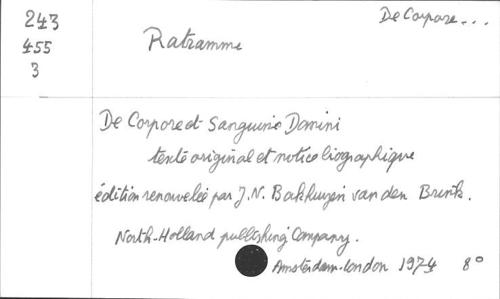 243
455
3
De Corpore...
Ratramme
De Corpore et Sanguinis Domini
texte original et notice biographique
édition renouvelée par J.N. Bakhuizen van den Brink.
North-Holland publishing Company.
Amsterdam-London 1974 8°